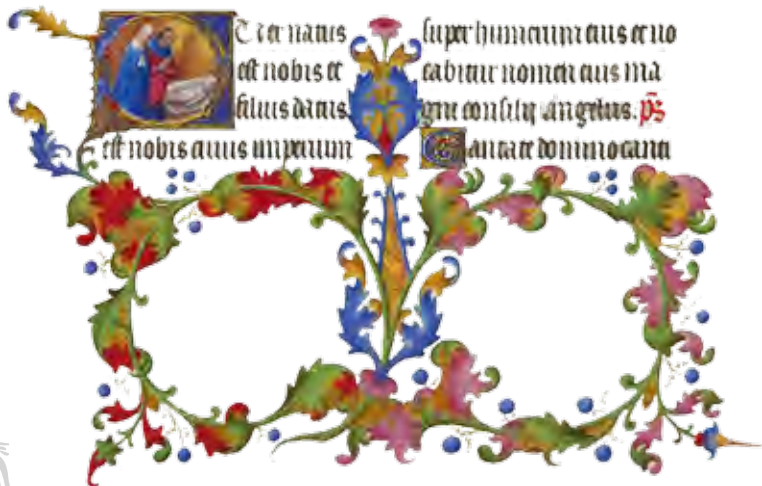 PUer natus
est nobis et
filius datus
est nobis cuius imperium
super humerum eius et uo
cabitur nomen eius ma
gni consilij angelus. p̄s
Cantate domino canti